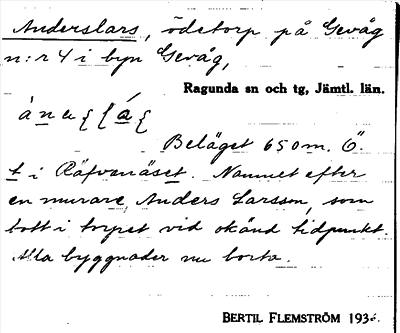 Anderslars, ödetorp på Gevåg
n:r 4 i byn Gevåg,
Ragunda sn och tg, Jämtl. län.
Beläget 650 m. Ö.
t i Räfvanäset. Namnet efter
en murare, Anders Larsson, som
bott i torpet vid okänd tidpunkt.
Alla byggnader nu borta.
BERTIL FLEMSTRÖM 193